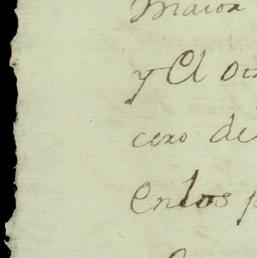 Maior
y El
cero de
Enlos p